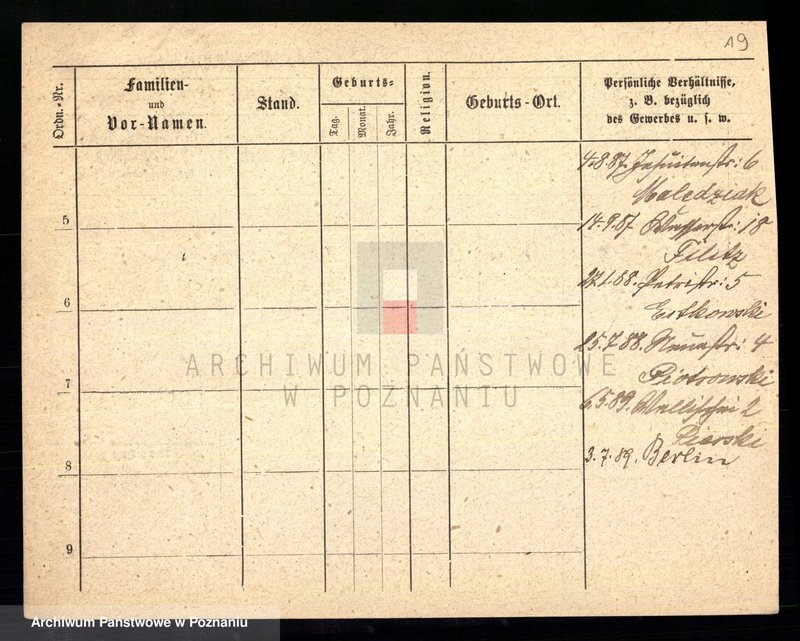 19
Ordn.-Nr.
Familien-
und
Vor-Namen.
Stand.
Geburts-
Tag.
Monat.
Jahr.
Religion.
Geburts-Ort.
Persönliche Verhältnisse,
z. B. bezüglich
des Gewerbes u. s. w.
4.8.87. Jesuitenstr: 6
Maledziak
5
14.9.87 18
Filitz
27.1.88. Petristr: 5
6
Estkowski
25.7.88. Neuestr: 4
Piotrowski
7
6.5.89. Wallischei 2
Pierske
8
3.7.89. Berlin
9
ARCHIWUM PAŃSTWOWE
W POZNANIU
Archiwum Państwowe w Poznaniu